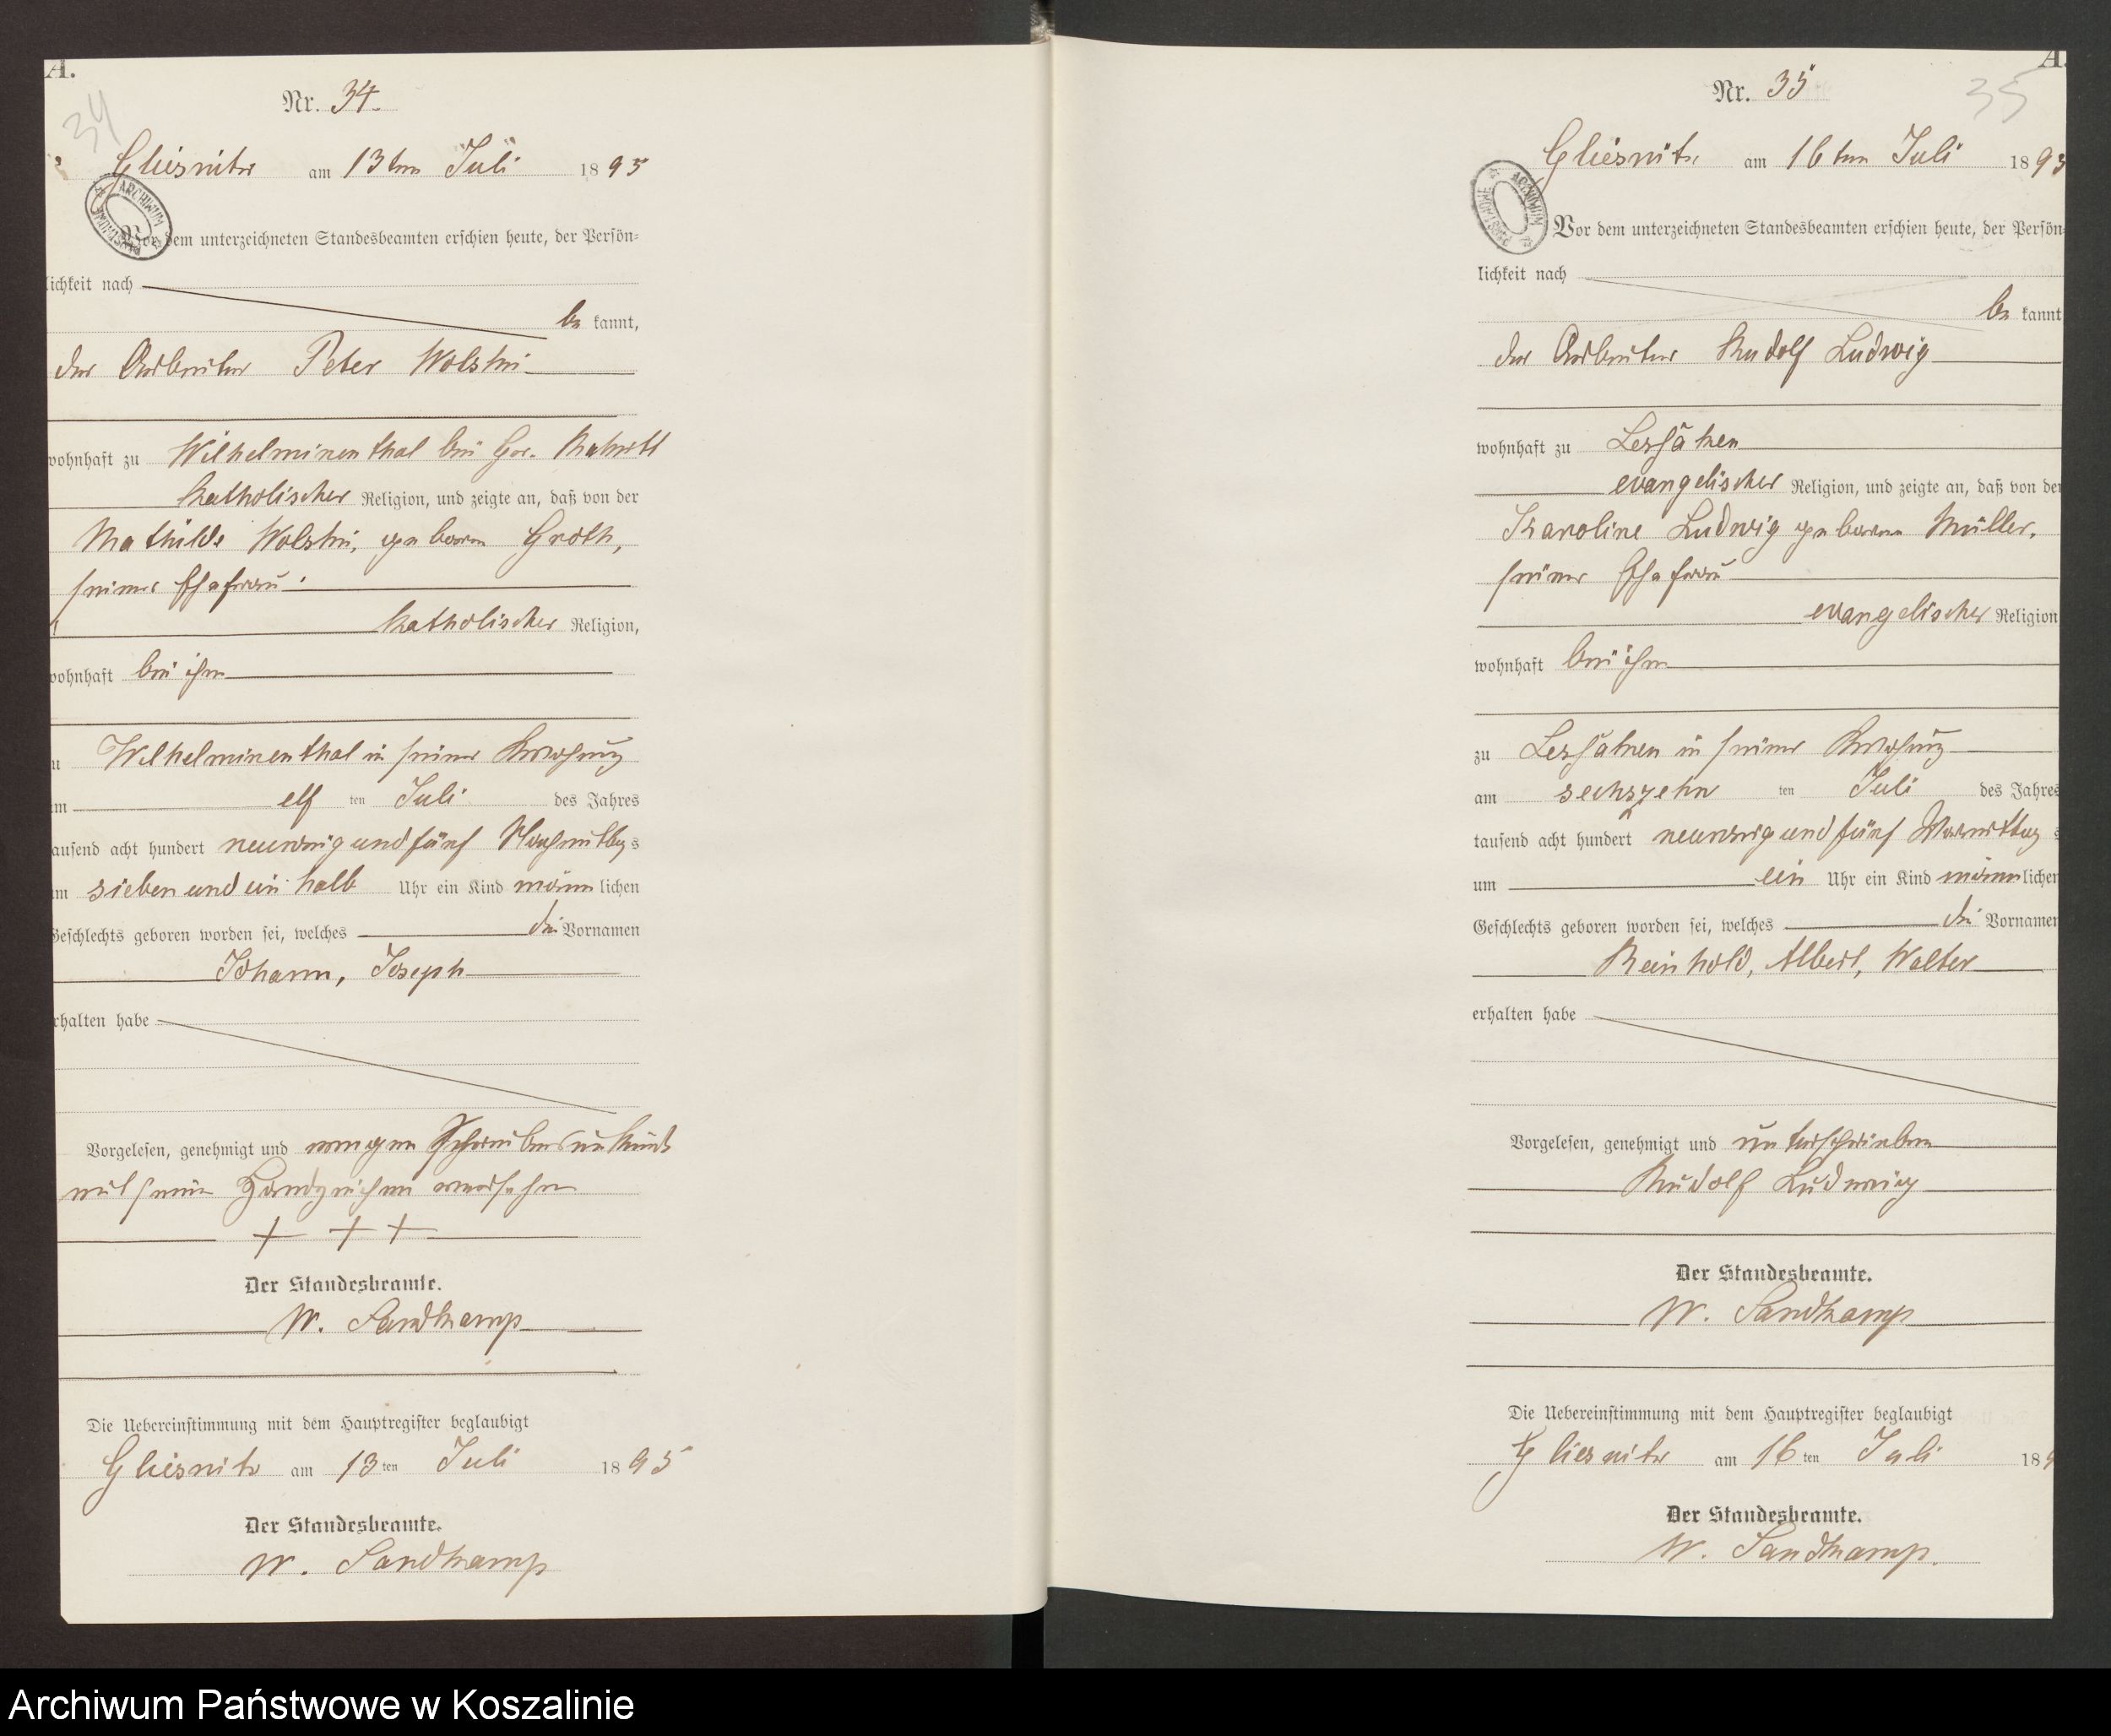 A.
34
Nr. 34.
Gliesnitz am 13ten Juli 1895
ARCHIWUM PAŃSTWOWE
Vor dem unterzeichneten Standesbeamten erschien heute, der Persön=
lichkeit nach
be kannt,
der Arbeiter Peter Wolski
wohnhaft zu Wilhelminenthal bei
katholischer Religion, und zeigte an, daß von der
Mathilde Wolski, geborene Groth,
seiner Ehefrau
katholischer Religion,
wohnhaft bei ihm
zu Wilhelminenthal in seiner Behausung
am elf ten Juli des Jahres
tausend acht hundert neunzig und fünf Nachmittags
um sieben und ein halb Uhr ein Kind männlichen
Geschlechts geboren worden sei, welches die Vornamen
Johann, Joseph
erhalten habe
Vorgelesen, genehmigt und wegen Schreibensunkunde
mit seinen Handzeichen versehen
+ + +
Der Standesbeamte.
W. Sandkamp
Die Uebereinstimmung mit dem Hauptregister beglaubigt
Gliesnitz am 13ten Juli 1895
Der Standesbeamte.
W. Sandkamp
A.
35
Nr. 35
Gliesnitz am 16ten Juli 1895
ARCHIWUM PAŃSTWOWE
Vor dem unterzeichneten Standesbeamten erschien heute, der Persön=
lichkeit nach
be kannt
der Arbeiter Rudolf Ludwig
wohnhaft zu Lessaken
evangelischer Religion, und zeigte an, daß von der
Karoline Ludwig geborene Müller,
seiner Ehefrau
evangelischer Religion
wohnhaft bei ihm
zu Lessaken in seiner Behausung
am sechszehn ten Juli des Jahres
tausend acht hundert neunzig und fünf Vormittags
um ein Uhr ein Kind männlichen
Geschlechts geboren worden sei, welches die Vornamen
Reinhold, Albert, Walter
erhalten habe
Vorgelesen, genehmigt und unterschrieben
Rudolf Ludwig
Der Standesbeamte.
W. Sandkamp
Die Uebereinstimmung mit dem Hauptregister beglaubigt
Gliesnitz am 16ten Juli 189
Der Standesbeamte.
W. Sandkamp.
Archiwum Państwowe w Koszalinie